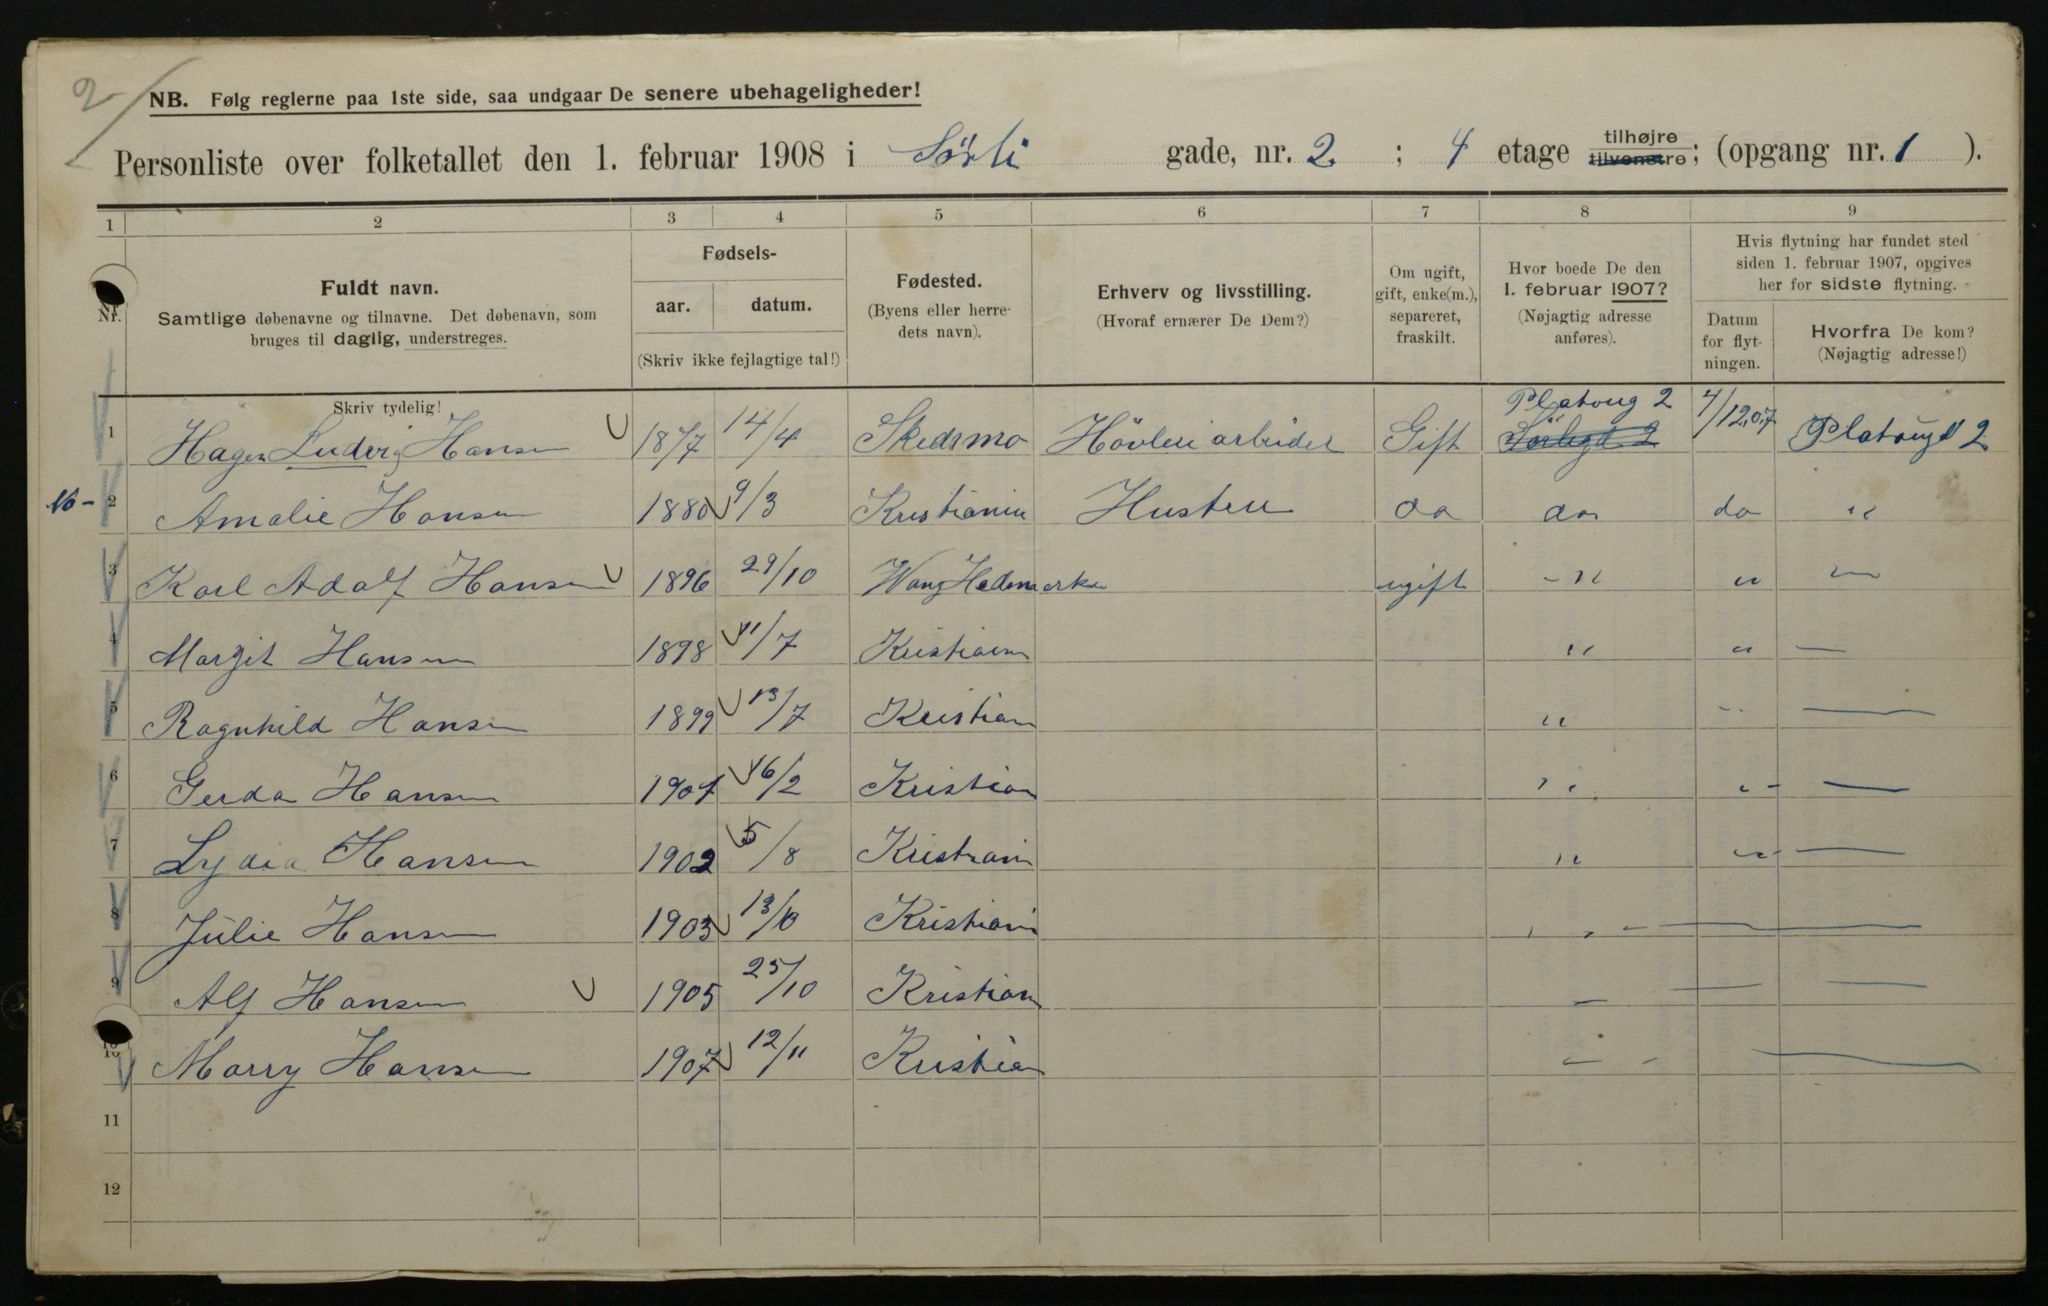 2
NB. Følg reglerne paa 1ste side, saa undgaar De senere ubehageligheder!
Personliste over folketallet den 1. februar 1908 i Sörli gade, nr. 2 ; 4 etage tilhøjre tilvenstre; (opgang nr. 1 ).
1 2 3 4 5 6 7 8 9
Nr.
Fuldt navn.
Samtlige døbenavne og tilnavne. Det døbenavn, som
bruges til daglig, understreges.
Skriv tydelig!
Fødsels-
aar. datum.
(Skriv ikke fejlagtige tal!)
Fødested.
(Byens eller herre-
dets navn).
Erhverv og livsstilling.
(Hvoraf ernærer De Dem?)
Om ugift,
gift, enke(m.),
separeret,
fraskilt.
Hvor boede De den
1. februar 1907?
(Nøjagtig adresse
anføres).
Hvis flytning har fundet sted
siden 1. februar 1907, opgives
her for sidste flytning.
Datum
for flyt-
ningen.
Hvorfra De kom?
(Nøjagtig adresse!)
Platoug 2
1 Hagen Ludvig Hansen 1877 14/4 Skedsmo Hövleri arbeider Gift Sörligd 2 4/12.07 Platougd 2
16 -
2 Amalie Hansen 1880 9/3 Kristiania Hustru do do do "
3 Karl Adolf Hansen 1896 29/10 Wang Hedemarken ugift - " " —
4 Margit Hansen 1898 11/7 Kristiania " " —
5 Ragnhild Hansen 1899 13/7 Kristian " " —
6 Gerda Hansen 1901 16/2 Kristian " " - —
7 Lydia Hansen 1902 5/8 Kristiania " " - —
8 Julie Hansen 1903 13/10 Kristiania " - —
9 Alf Hansen 1905 25/10 Kristian — — —
10 Marry Hansen 1907 12/11 Kristian — - —
11
12